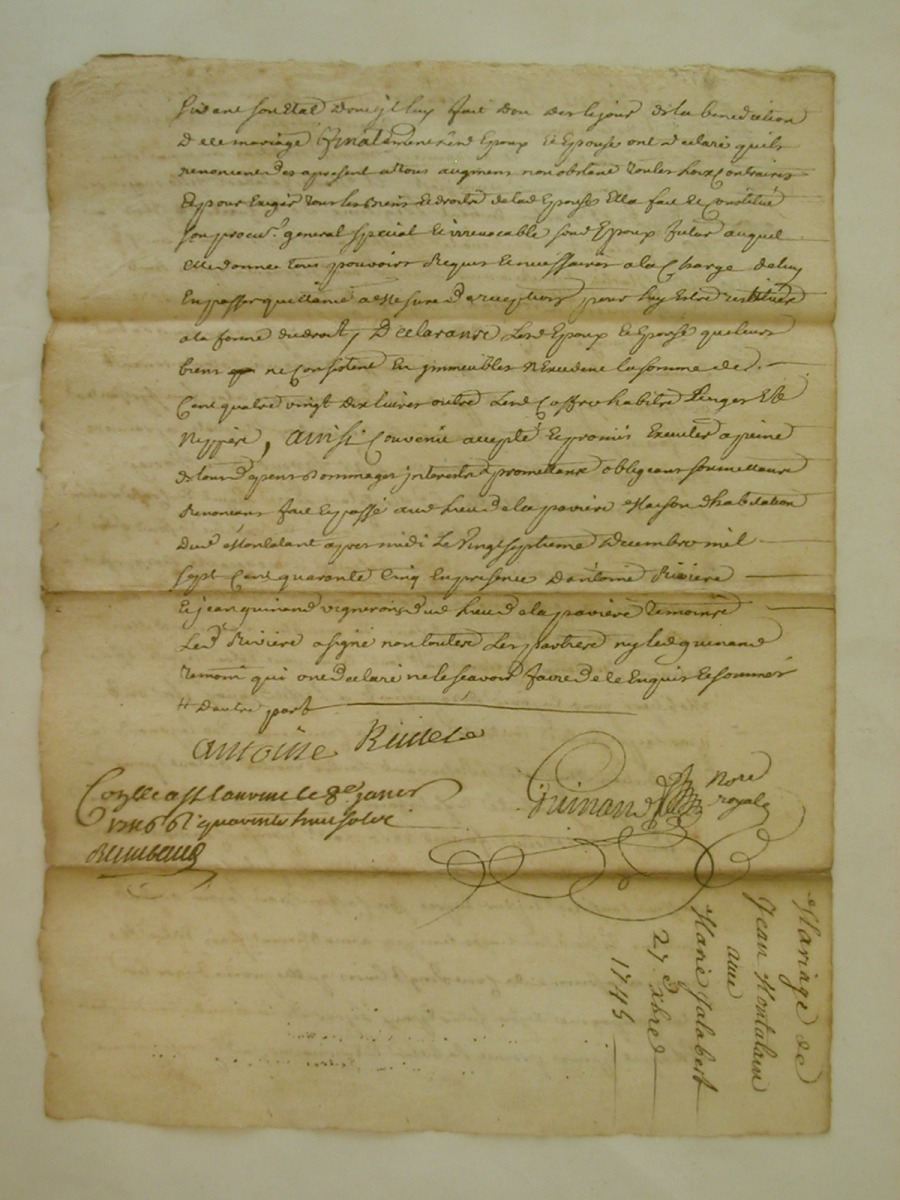 Suivant son Etat Dont jl luy fait Don des le jour de la benediction
D ce mariage finalement lesd Epoux Et Epouse ont declaré quils
renoncent des apresent a tous augmens non obstant toutes Loix Contraires
Et pour Exiger tous les biens Et droits de lad Epouse Elle a fait Et Constitué
son procur. general special Et irrevocable sond Epoux futur auquel
Elle donne tous pouvoirs Requis Et necessaires a la Charge de luy
En passer quittance a mesure de reception pour luy Estre restitués
a la forme du droit, Declarants Lesd Epoux Et Epouse que leurs
biens ne Consistent En jmmeubles N Excedent la somme de
Cent quatre vingt dix livres outre Lesd Coffre habits Linges Et
Nippes, Ainsi Convenu accepté Et promis Executer a peine
de tous depens dommages jnterests promettants obligeants soumettants
Renonçants fait Et passé aud Lieu de la paviere Maison dhabitation
Dud Montalant apres midi Le Vingt septieme Decembre mil
sept Cent quarante Cinq En presence D antoine Riviere
Et jean guinand vignerons dud Lieu de la paviere temoins
Led Riviere a signé non toutes Les parties ny led guinand
temoin qui ont declaré ne le sçavoir faire de ce Enquis Et sommés
D autre part
antoine Riviere
Guinand Nore
royale
le 8e janvier
1746 quarante huit sols
Mariage de
Jean Montalant
avec
Marie Jalabert
27 d xbre
1745